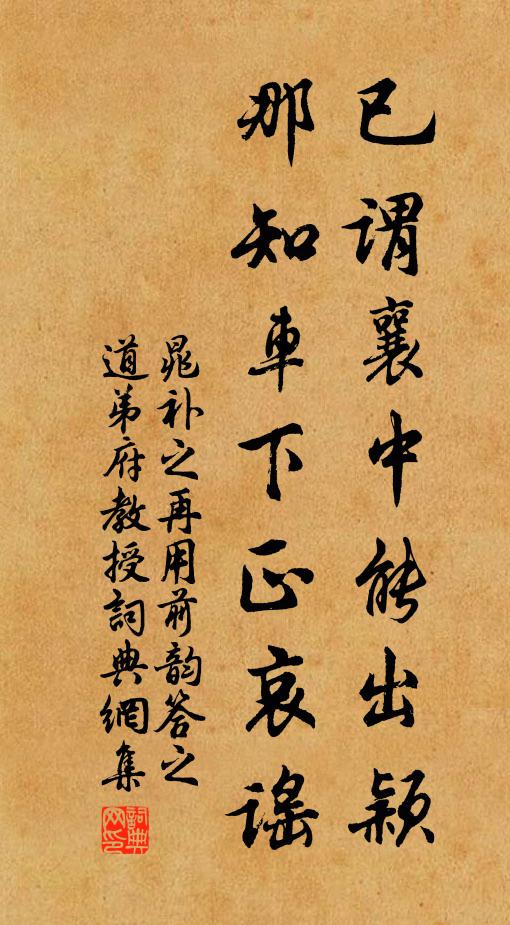 已謂襄中能出穎
那知車下正哀謠
晁補之再用前韵答之
道弟府教授詞典網集
詞典网印